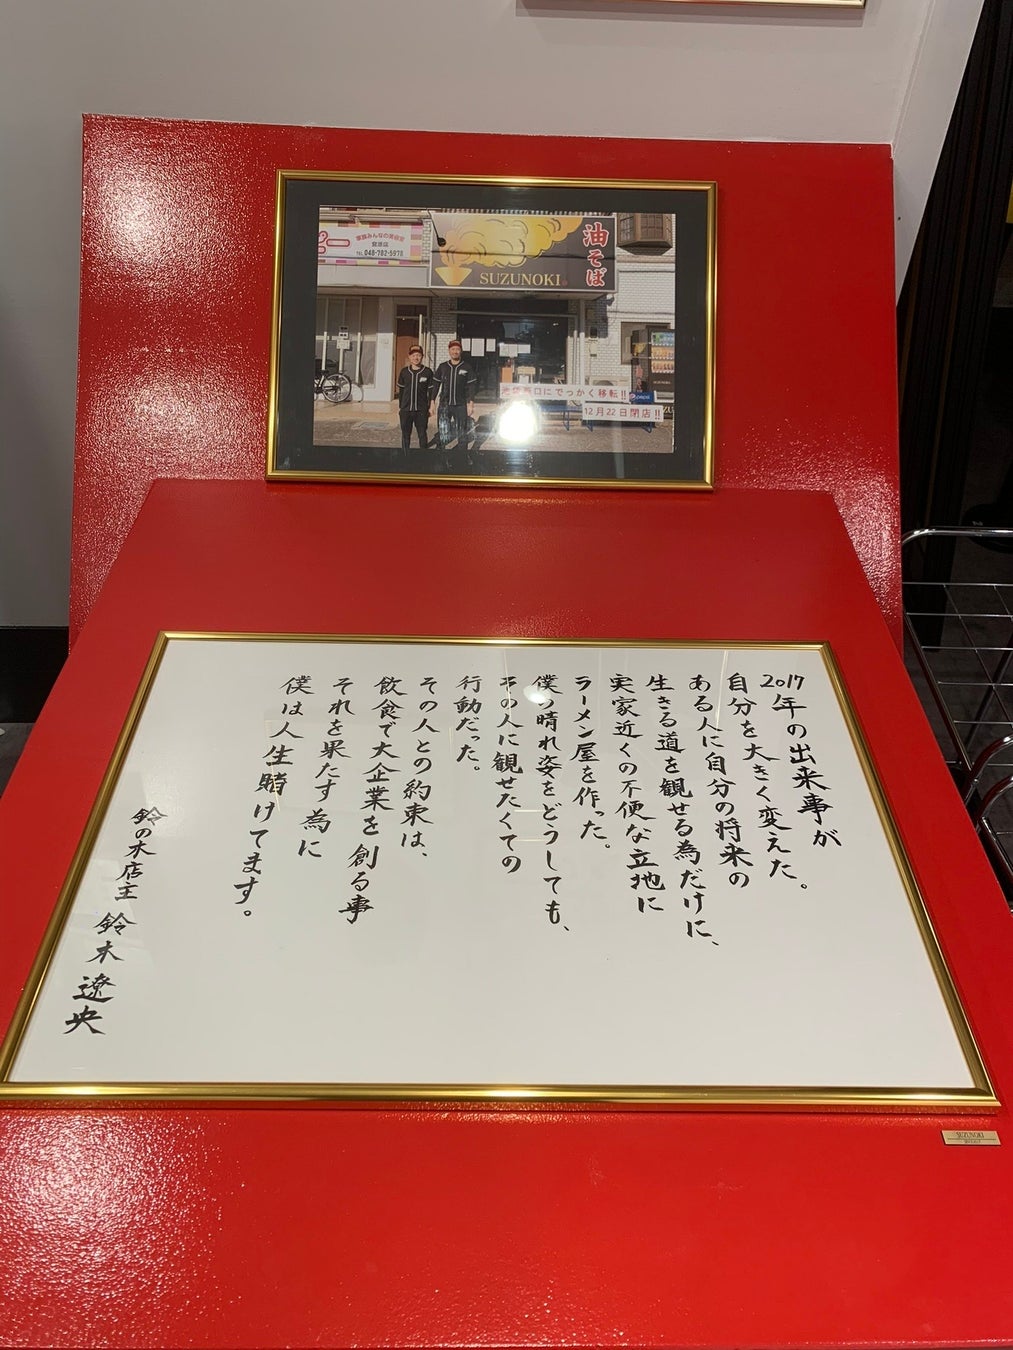 家族みんなの美容室
TEL 048-782-5978
SUZUNOKI
油そば
池袋西口にでっかく移転!!
12月22日閉店!!
pepsi
2017年の出来事が
自分を大きく変えた。
ある人に自分の将来の
生きる道を観せる為だけに、
実家近くの不便な立地に
ラーメン屋を作った。
僕の晴れ姿をどうしても、
その人に観せたくての
行動だった。
その人との約束は、
飲食で大企業を創る事
それを果たす為に
僕は人生賭けてます。
鈴の木店主 鈴木遼央
SUZUNOKI